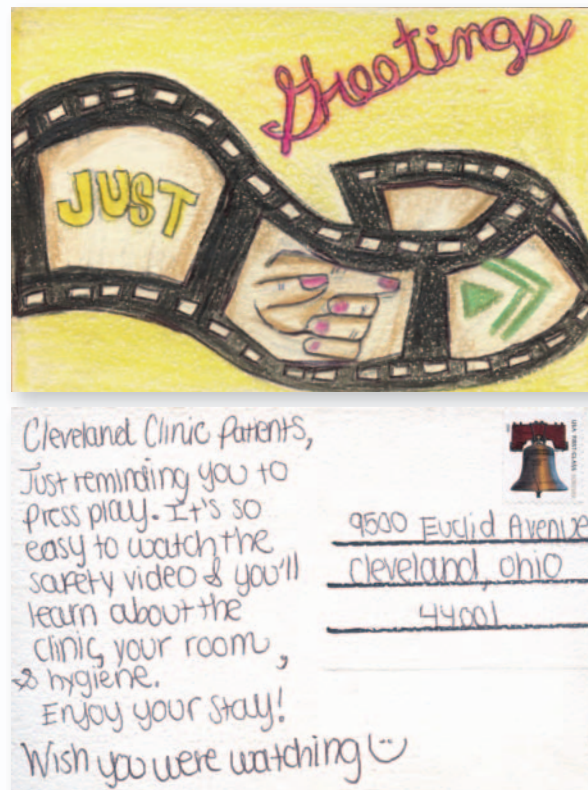 Greetings
JUST
Cleveland Clinic Patients,
Just reminding you to
press play. It's so
easy to watch the
safety video & you'll
learn about the
clinic, your room,
& hygiene.
Enjoy your stay!
Wish you were watching
USA FIRST-CLASS
9500 Euclid Avenue
Cleveland, Ohio
44001